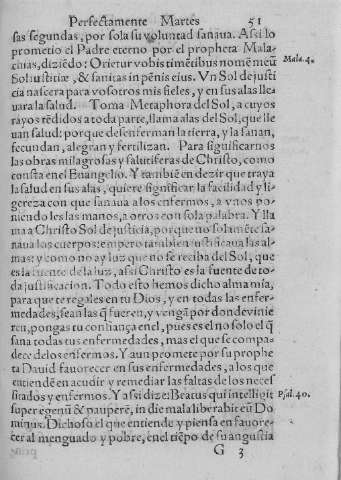 Perfectamente Martes 51
sas segundas, por sola su voluntad sanaua. Assi lo
prometio el Padre eterno por el propheta Mala-
chias, diziẽdo: Orietur vobis timẽtibus nomẽ meũ
Mala. 4.
Sol iustitiæ, & sanitas in pẽnis eius. Vn Sol de justi
cia nascera para vosotros mis fieles, y en sus alas lle
uara la salud. Toma Metaphora del Sol, a cuyos
rayos tẽdidos a toda parte, llama alas del Sol, que lle
uan salud: porque desenferman la tierra, y la sanan,
fecundan, alegran y fertilizan. Para significarnos
las obras milagrosas y salutiferas de Christo, como
consta en el Euangelio. Y tambiẽ en dezir que traya
la salud en sus alas, quiere significar la facilidad y li
gereza con que sanaua a los enfermos, a vnos po
niendo les las manos, a otros con sola palabra. Y lla
ma a Christo Sol de justicia, porque no solamẽte sa-
naua los cuerpos: empero tambien justificaua las al-
mas: y como no ay luz que no se reciba del Sol, que
es la fuente de la luz, assi Christo es la fuente de to-
da justificacion. Todo esto hemos dicho alma mia,
para que te regales en tu Dios, y en todas las enfer-
medades, sean las q̃ fueren, y vengã por donde vinie
ren, pongas tu confiança en el, pues es el no solo el q̃
sana todas tus enfermedades, mas el que se compa-
dece de los enfermos. Y aun promete por su prophe
ta Dauid fauorecer en sus enfermedades, a los que
entiendẽ en acudir y remediar las faltas de los neces
sitados y enfermos. Y assi dize: Beatus qui intelligit
Psal. 40.
super egenũ & pauperẽ, in die mala liberabit eũ Do
minus. Dichoso el que entiende y piensa en fauore-
cer al menguado y pobre, en el tiẽpo de su angustia
G 3